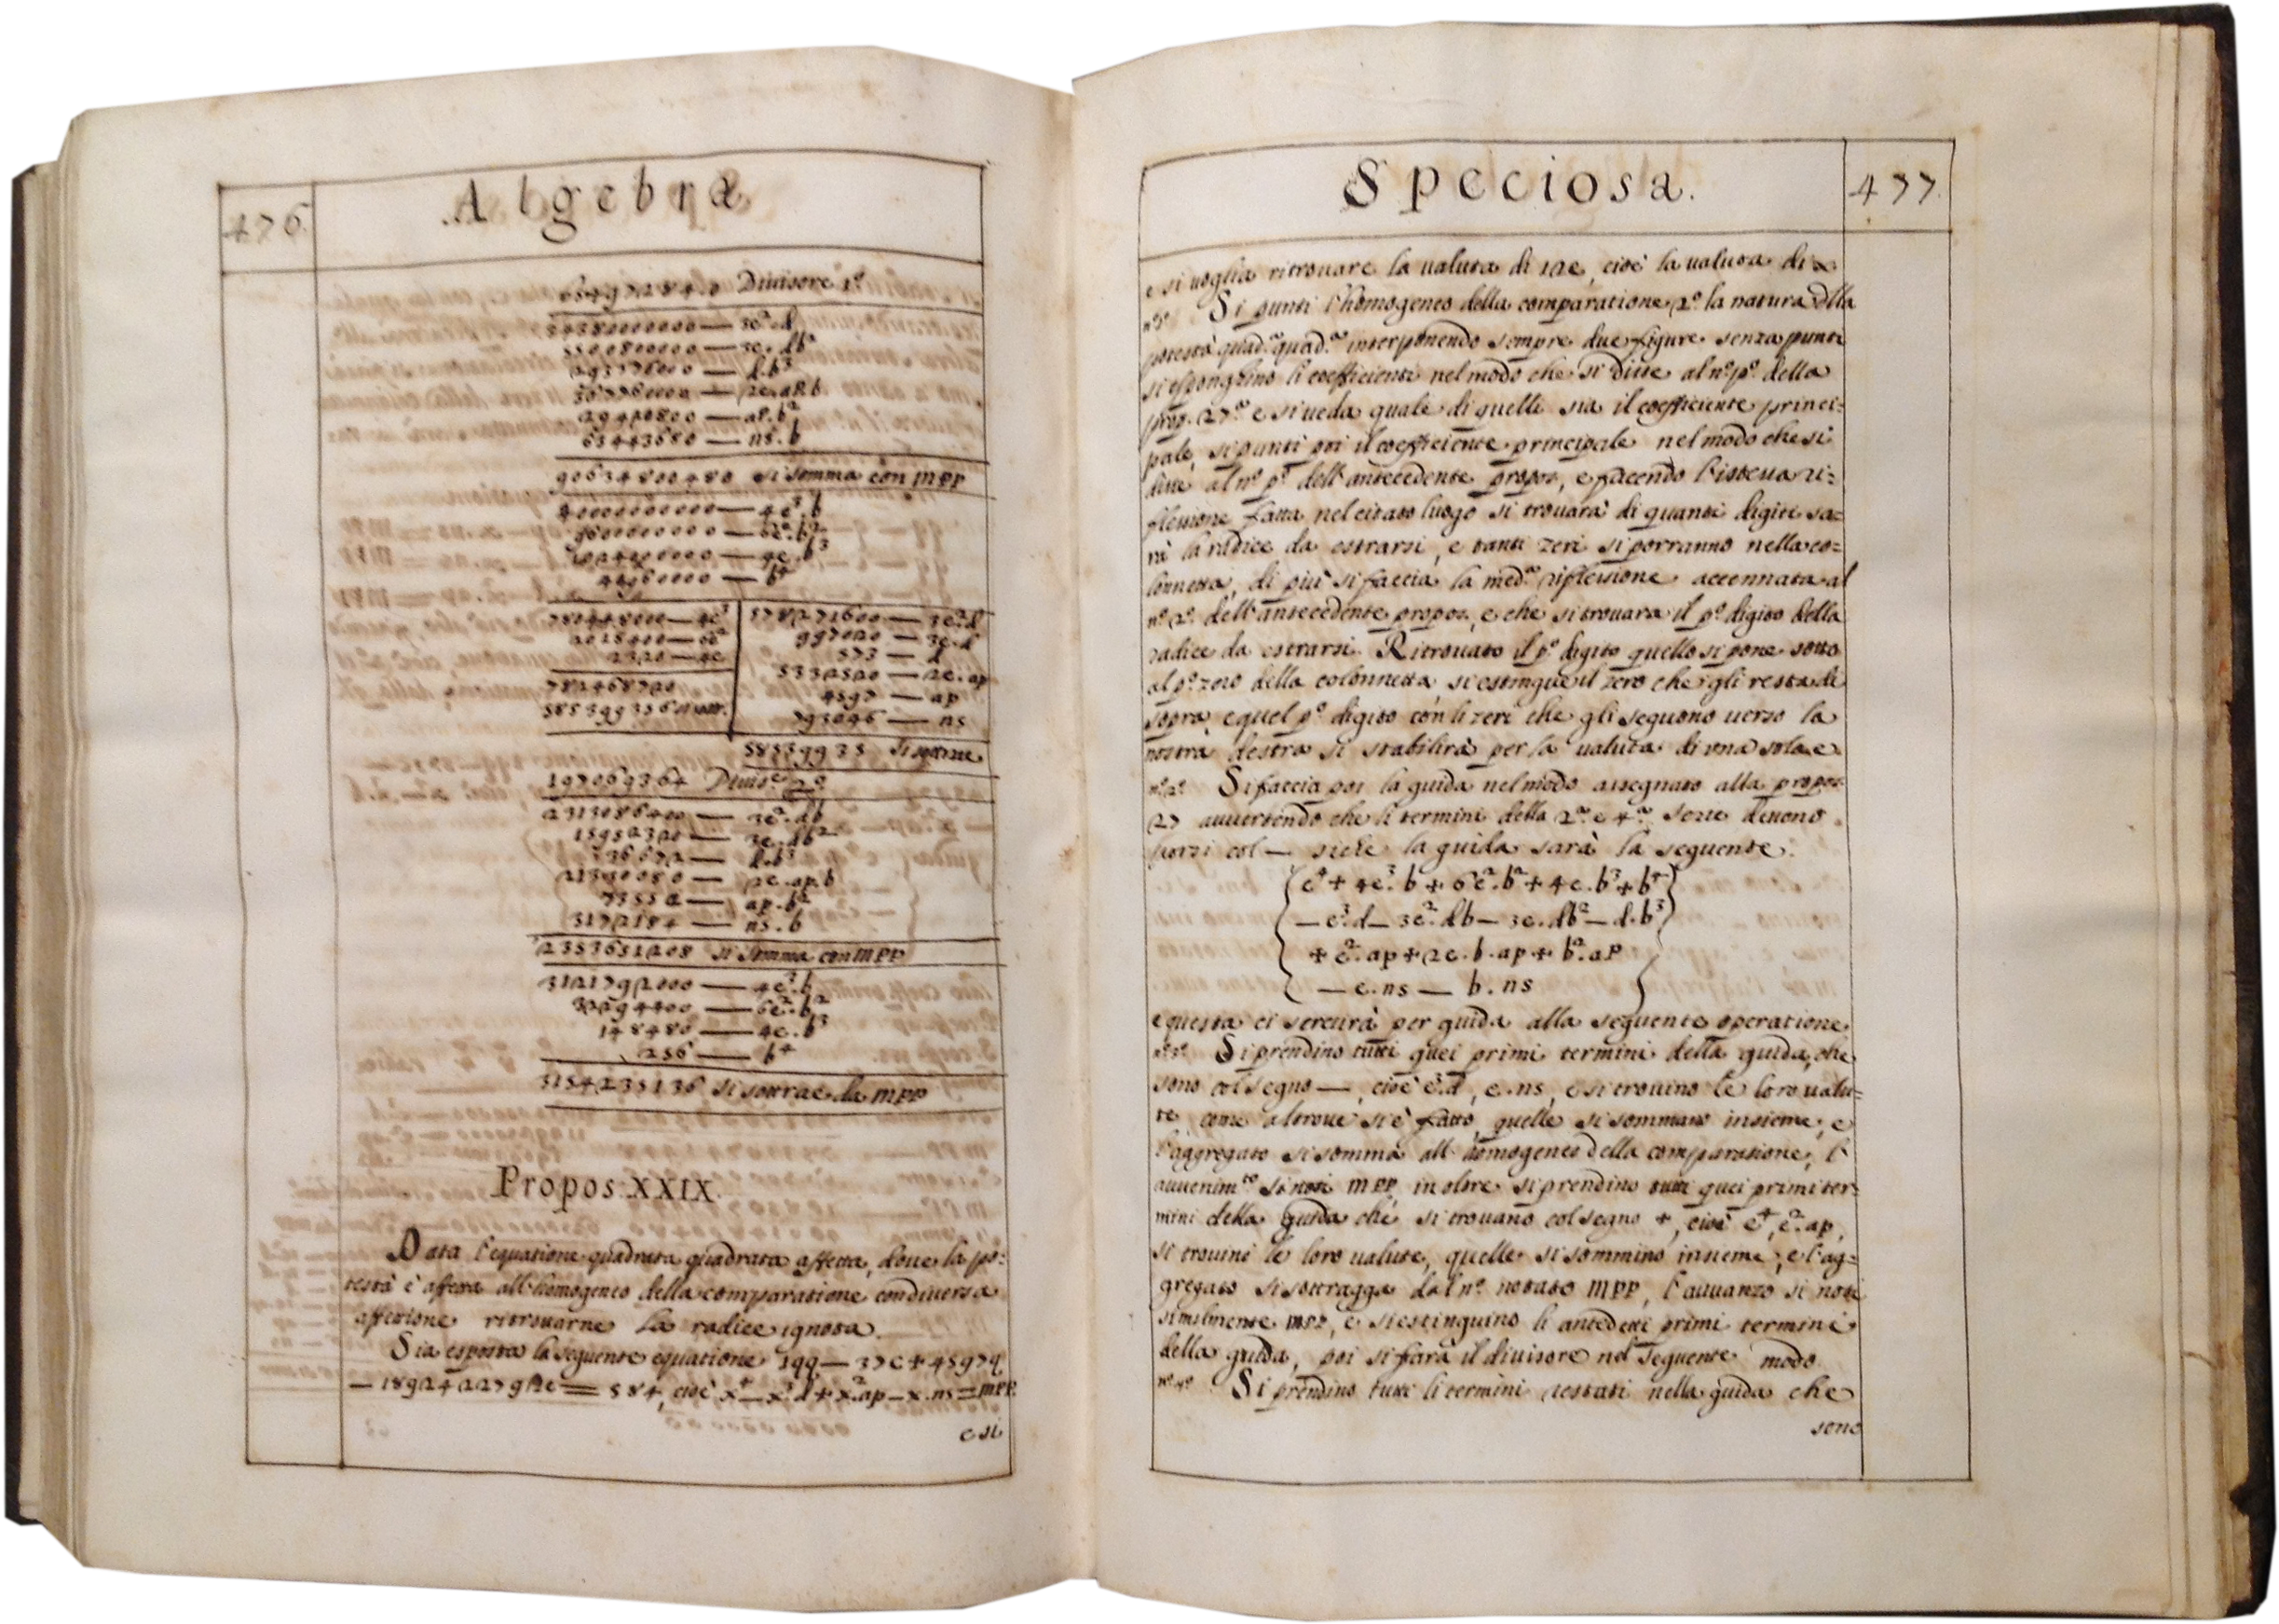 476.
Algebra
6549728480 Divisore 1º
54380000000 — 3e².d
5500800000 — 3e.db²
— d.b³
367760000 — 2e.aP.b
29420800 — aP.b²
63443680 — ns.b
90634800480 si somma con mpp
400000000000 — 4e³.b
— 6e².b²
— 4e.b³
— b⁴
780448000 — 4e³
2018400 — 6e²
2320 — 4e
782468720
578271600 — 3e².d
997020 — 3e.d
573 — d
5332520 — 2e.ap
4597 — ap
793046 — ns
si sottrae
197069364 Divis.e 2º
2313086400 — 3e².db
15952320 — 3e.db²
36672 — d.b³
21330080 — 2e.ap.b
73552 — ap.b²
3172184 — ns.b
2353651208 si somma con mpp
3121792000 — 4e³.b
32294400 — 6e².b²
148480 — 4e.b³
256 — b⁴
3154235136 si sottrae da mpp
Propos: XXIX.
Data l'equatione quadrata quadrata affetta, doue la po:
testà è affetta all'homogeneo della comparatione con diuersa
affettione ritrouarne la radice ignota.
Sia esposta la seguente equatione 1qq — 37c + 4597q
— 18924227912e == 584, cioè x⁴ — x³.d + x².ap — x.ns = mpp.
e si
Speciosa.
477.
e si uoglia ritrouare la ualuta di 1ae, cioè la ualuta di x
nº pº Si punti l'homogeneo della comparatione, 2º la natura della
potestà quad.ª quad.ª interponendo sempre due figure senza punti
si esponghino li coefficienti nel modo che si disse al nº pº della
prop. 27ª e si ueda quale di quelli sia il coefficiente princi:
pale, si punti poi il coefficiente principale nel modo che si
disse al nº pº dell'antecedente propos, e facendo l'istessa ri:
flessione fatta nel citato luogo si trouarà di quanti digiti sa:
rà la radice da estrarsi, e tanti zeri si porranno nella co:
lonnetta, di più si faccia la med.ª riflessione accennata al
nº 2º dell'antecedente propos, e che si trouara il pº digito della
radice da estrarsi. Ritrouato il pº digito quello si pone sotto
al pº zero della colonnetta si estingue il zero che gli resta di
sopra, e quel pº digito con li zeri che gli seguono uerso la
nostra destra si stabilirà per la ualuta di una sola e
nº 2º Si faccia poi la guida nel modo assegnato alla propos
27 auuertendo che li termini della 2ª e 4ª serie deuono
porsi col — siche la guida sarà la seguente.
e⁴ + 4e³.b + 6e².b² + 4e.b³ + b⁴
— e³.d — 3e².db — 3e.db² — d.b³
+ e².ap + 2e.b.ap + b².ap
— e.ns — b.ns
e questa ci seruirà per guida alla seguente operatione
nº 3º Si prendino tutti quei primi termini della guida, che
sono col segno —, cioè e³.d, e.ns, e si trouino le loro ualu:
te, come altroue si è fatto, quelle si sommano insieme; e
l'aggregato si somma all'homogeneo della comparatione, l'
auuenim.to si noti mpp, in oltre si prendino tutti quei primi ter:
mini della guida che si trouano col segno +, cioè e⁴, e².ap,
si trouini le loro ualute, quelle si sommino insieme, e l'ag:
gregato si sottragga dal nº notato mpp, l'auuanzo si noti
similmente mpp, e si estinguino li antedetti primi termini
della guida, poi si farà il diuisore nel seguente modo.
nº 4º Si prendino tutti li termini restati nella guida che
sono